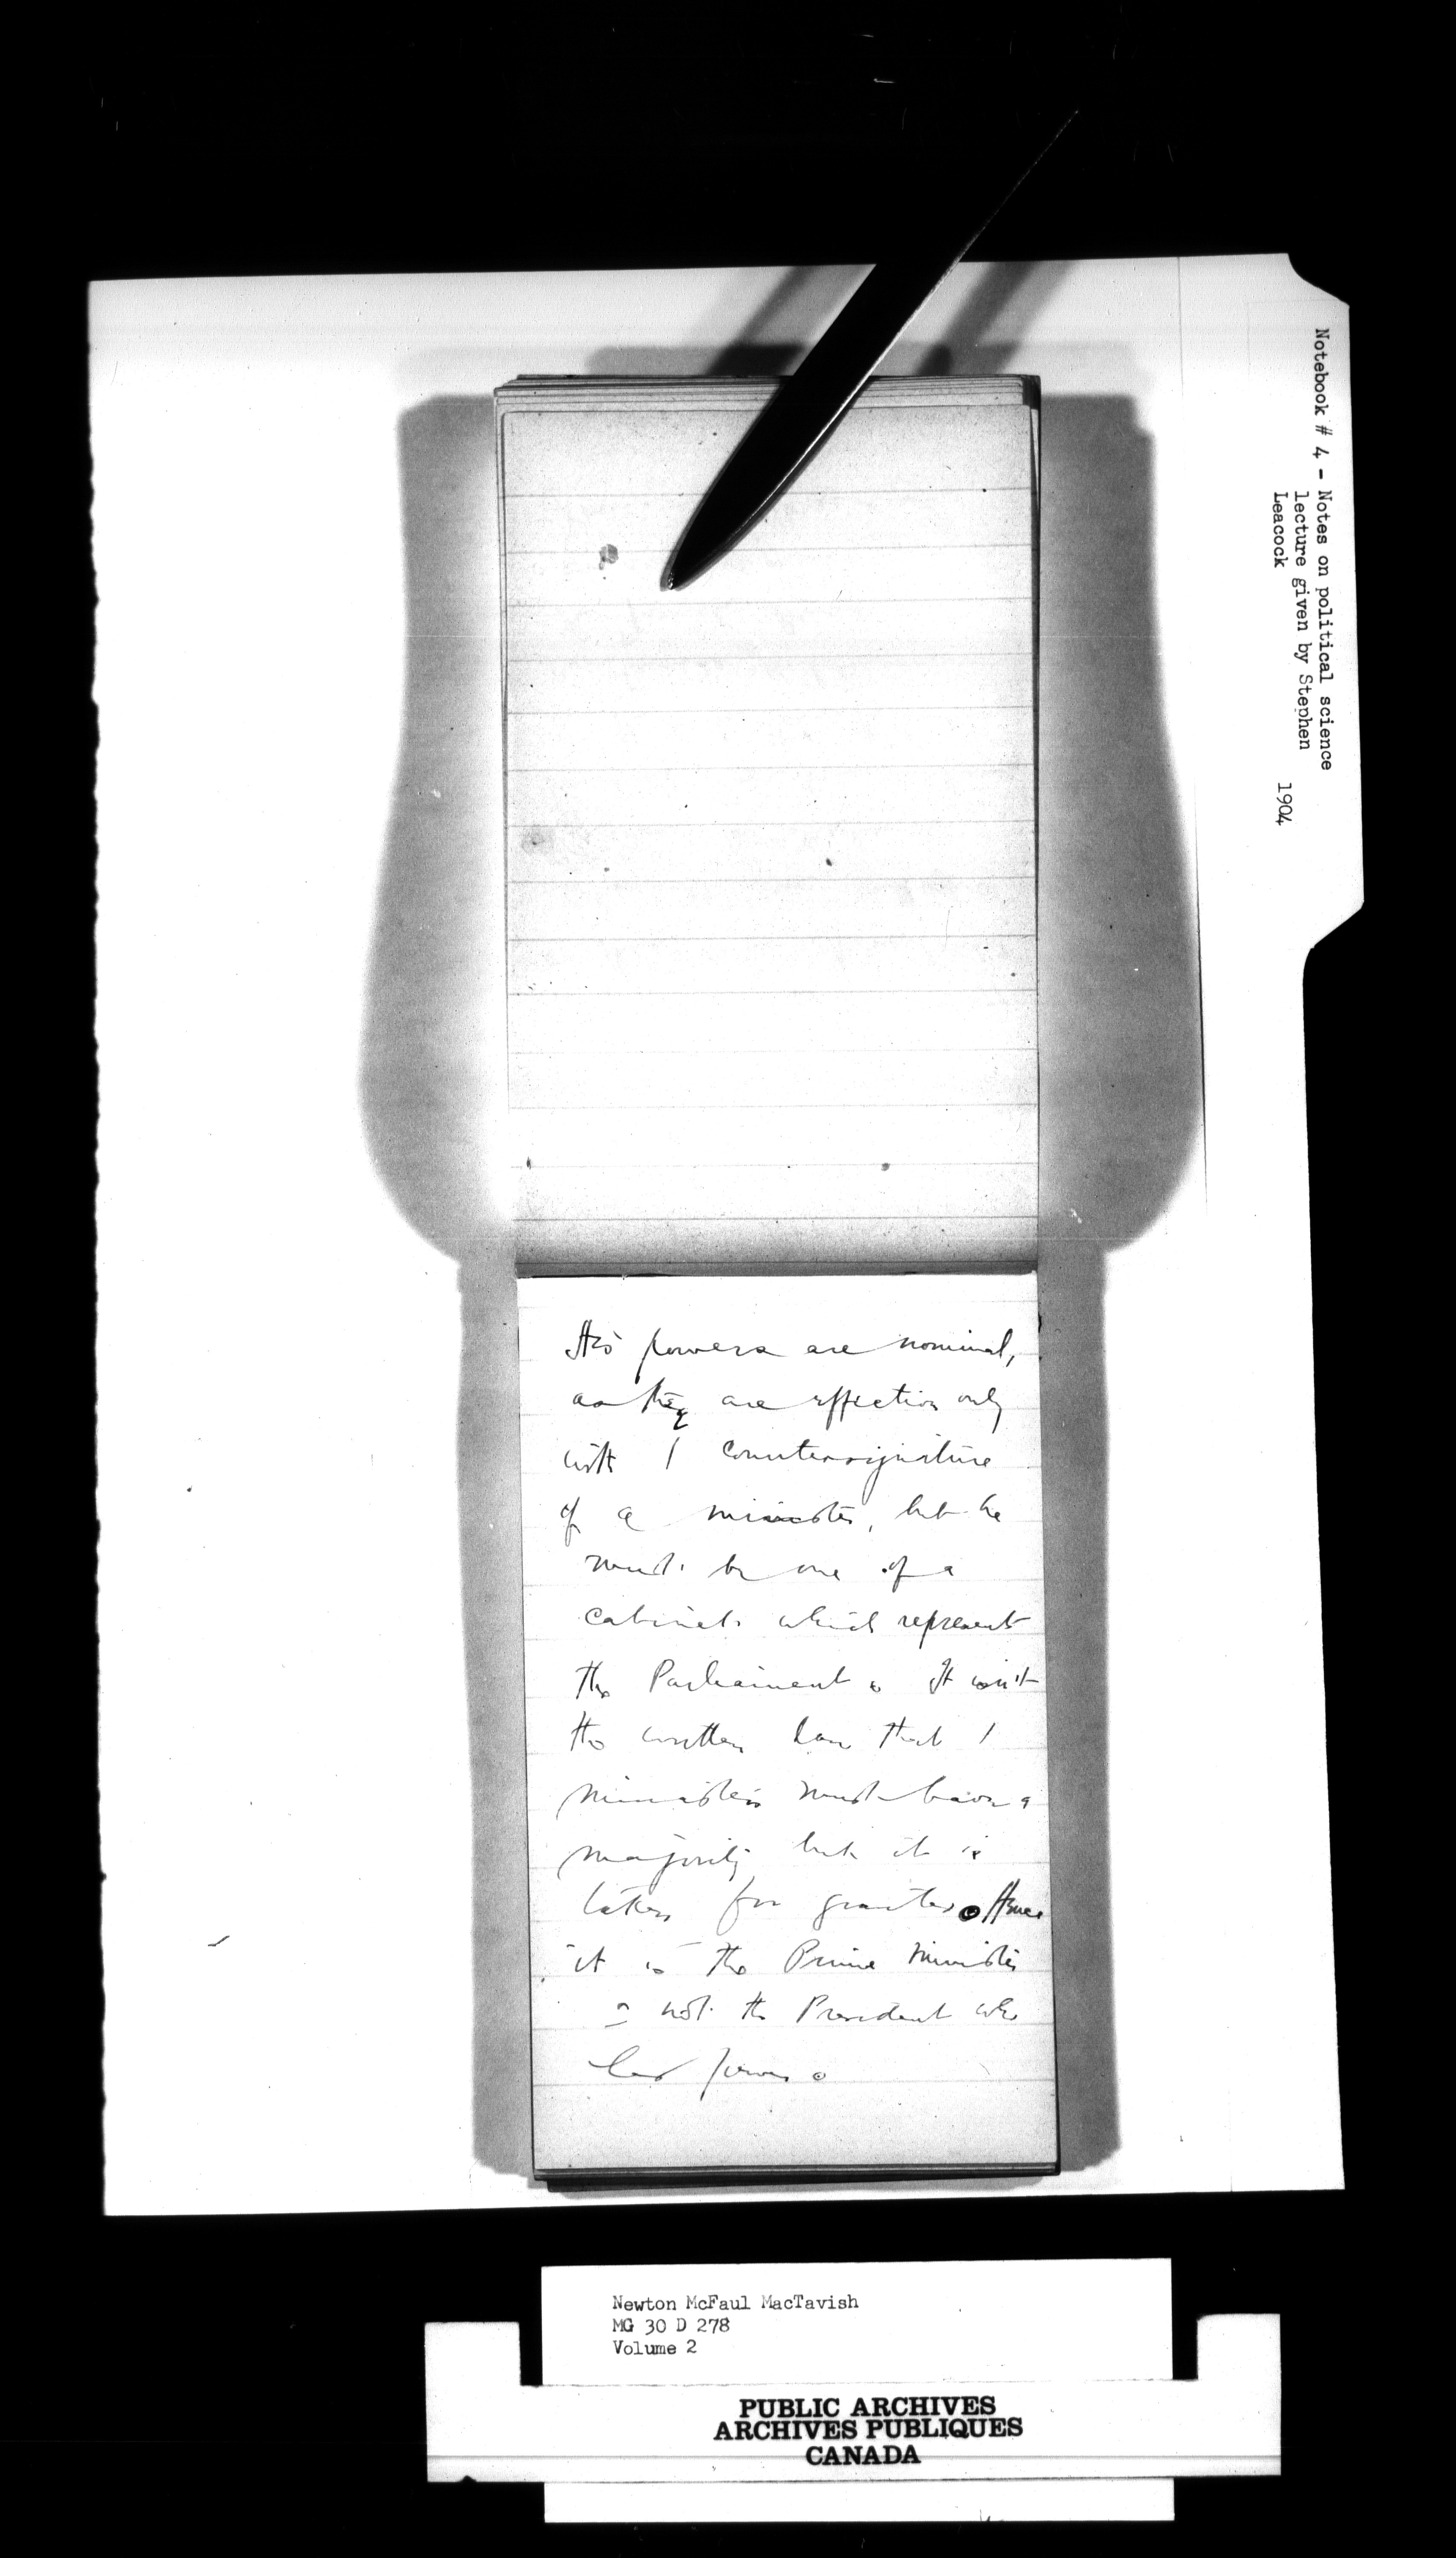 Notebook # 4 - Notes on political science
lecture given by Stephen
Leacock 1904
His powers are nominal,
as they are effective only
with / countersignature
of a minister, but he
must be one of a
cabinet which represent
the Parliament. It isn't
the written law that /
ministers must have a
majority but it is
taken for granted. Hence
it is the Prime Minister
& not the President who
has power.
Newton McFaul MacTavish
MG 30 D 278
Volume 2
PUBLIC ARCHIVES
ARCHIVES PUBLIQUES
CANADA